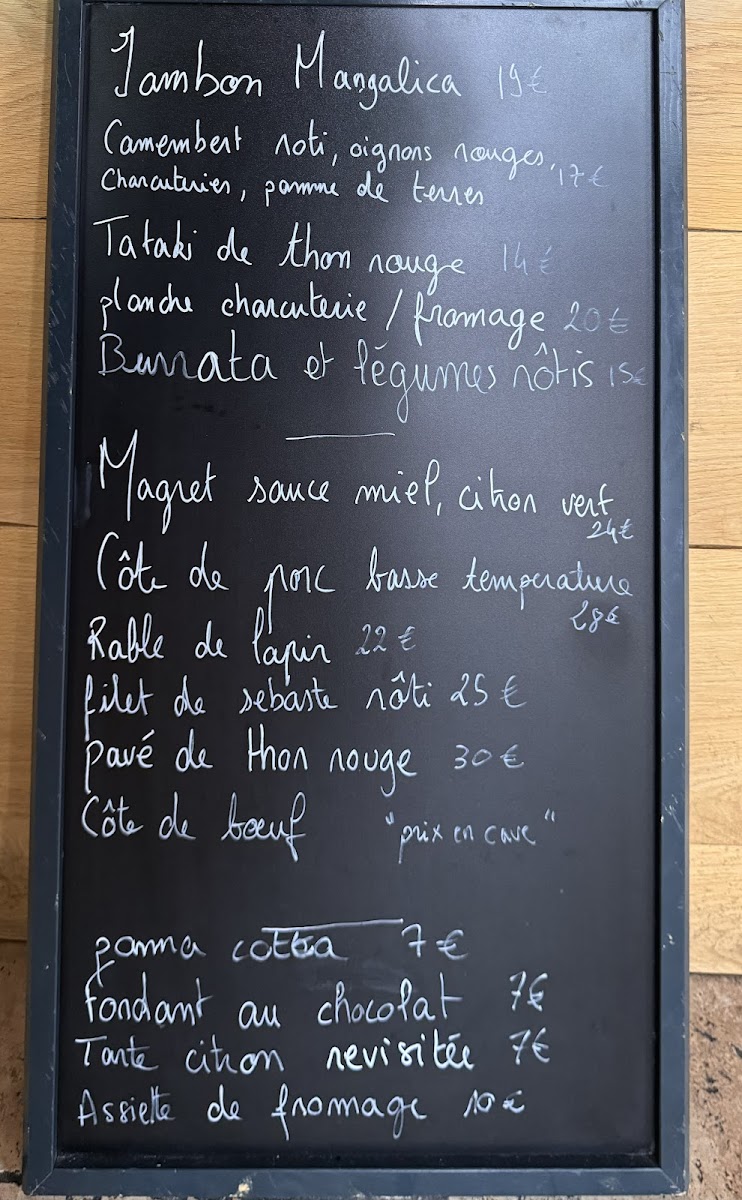 Jambon Mangalica 19€
Camembert rôti, oignons rouges,
Charcuteries, pomme de terres 17€
Tataki de thon rouge 14€
planche charcuterie / fromage 20€
Burrata et légumes rôtis 15€
Magret sauce miel, citron vert
24€
Côte de porc basse température
28€
Rable de lapin 22€
filet de sebaste rôti 25€
pavé de thon rouge 30€
Côte de bœuf "prix en cave"
panna cotta 7€
fondant au chocolat 7€
Tarte citron revisitée 7€
Assiette de fromage 10€